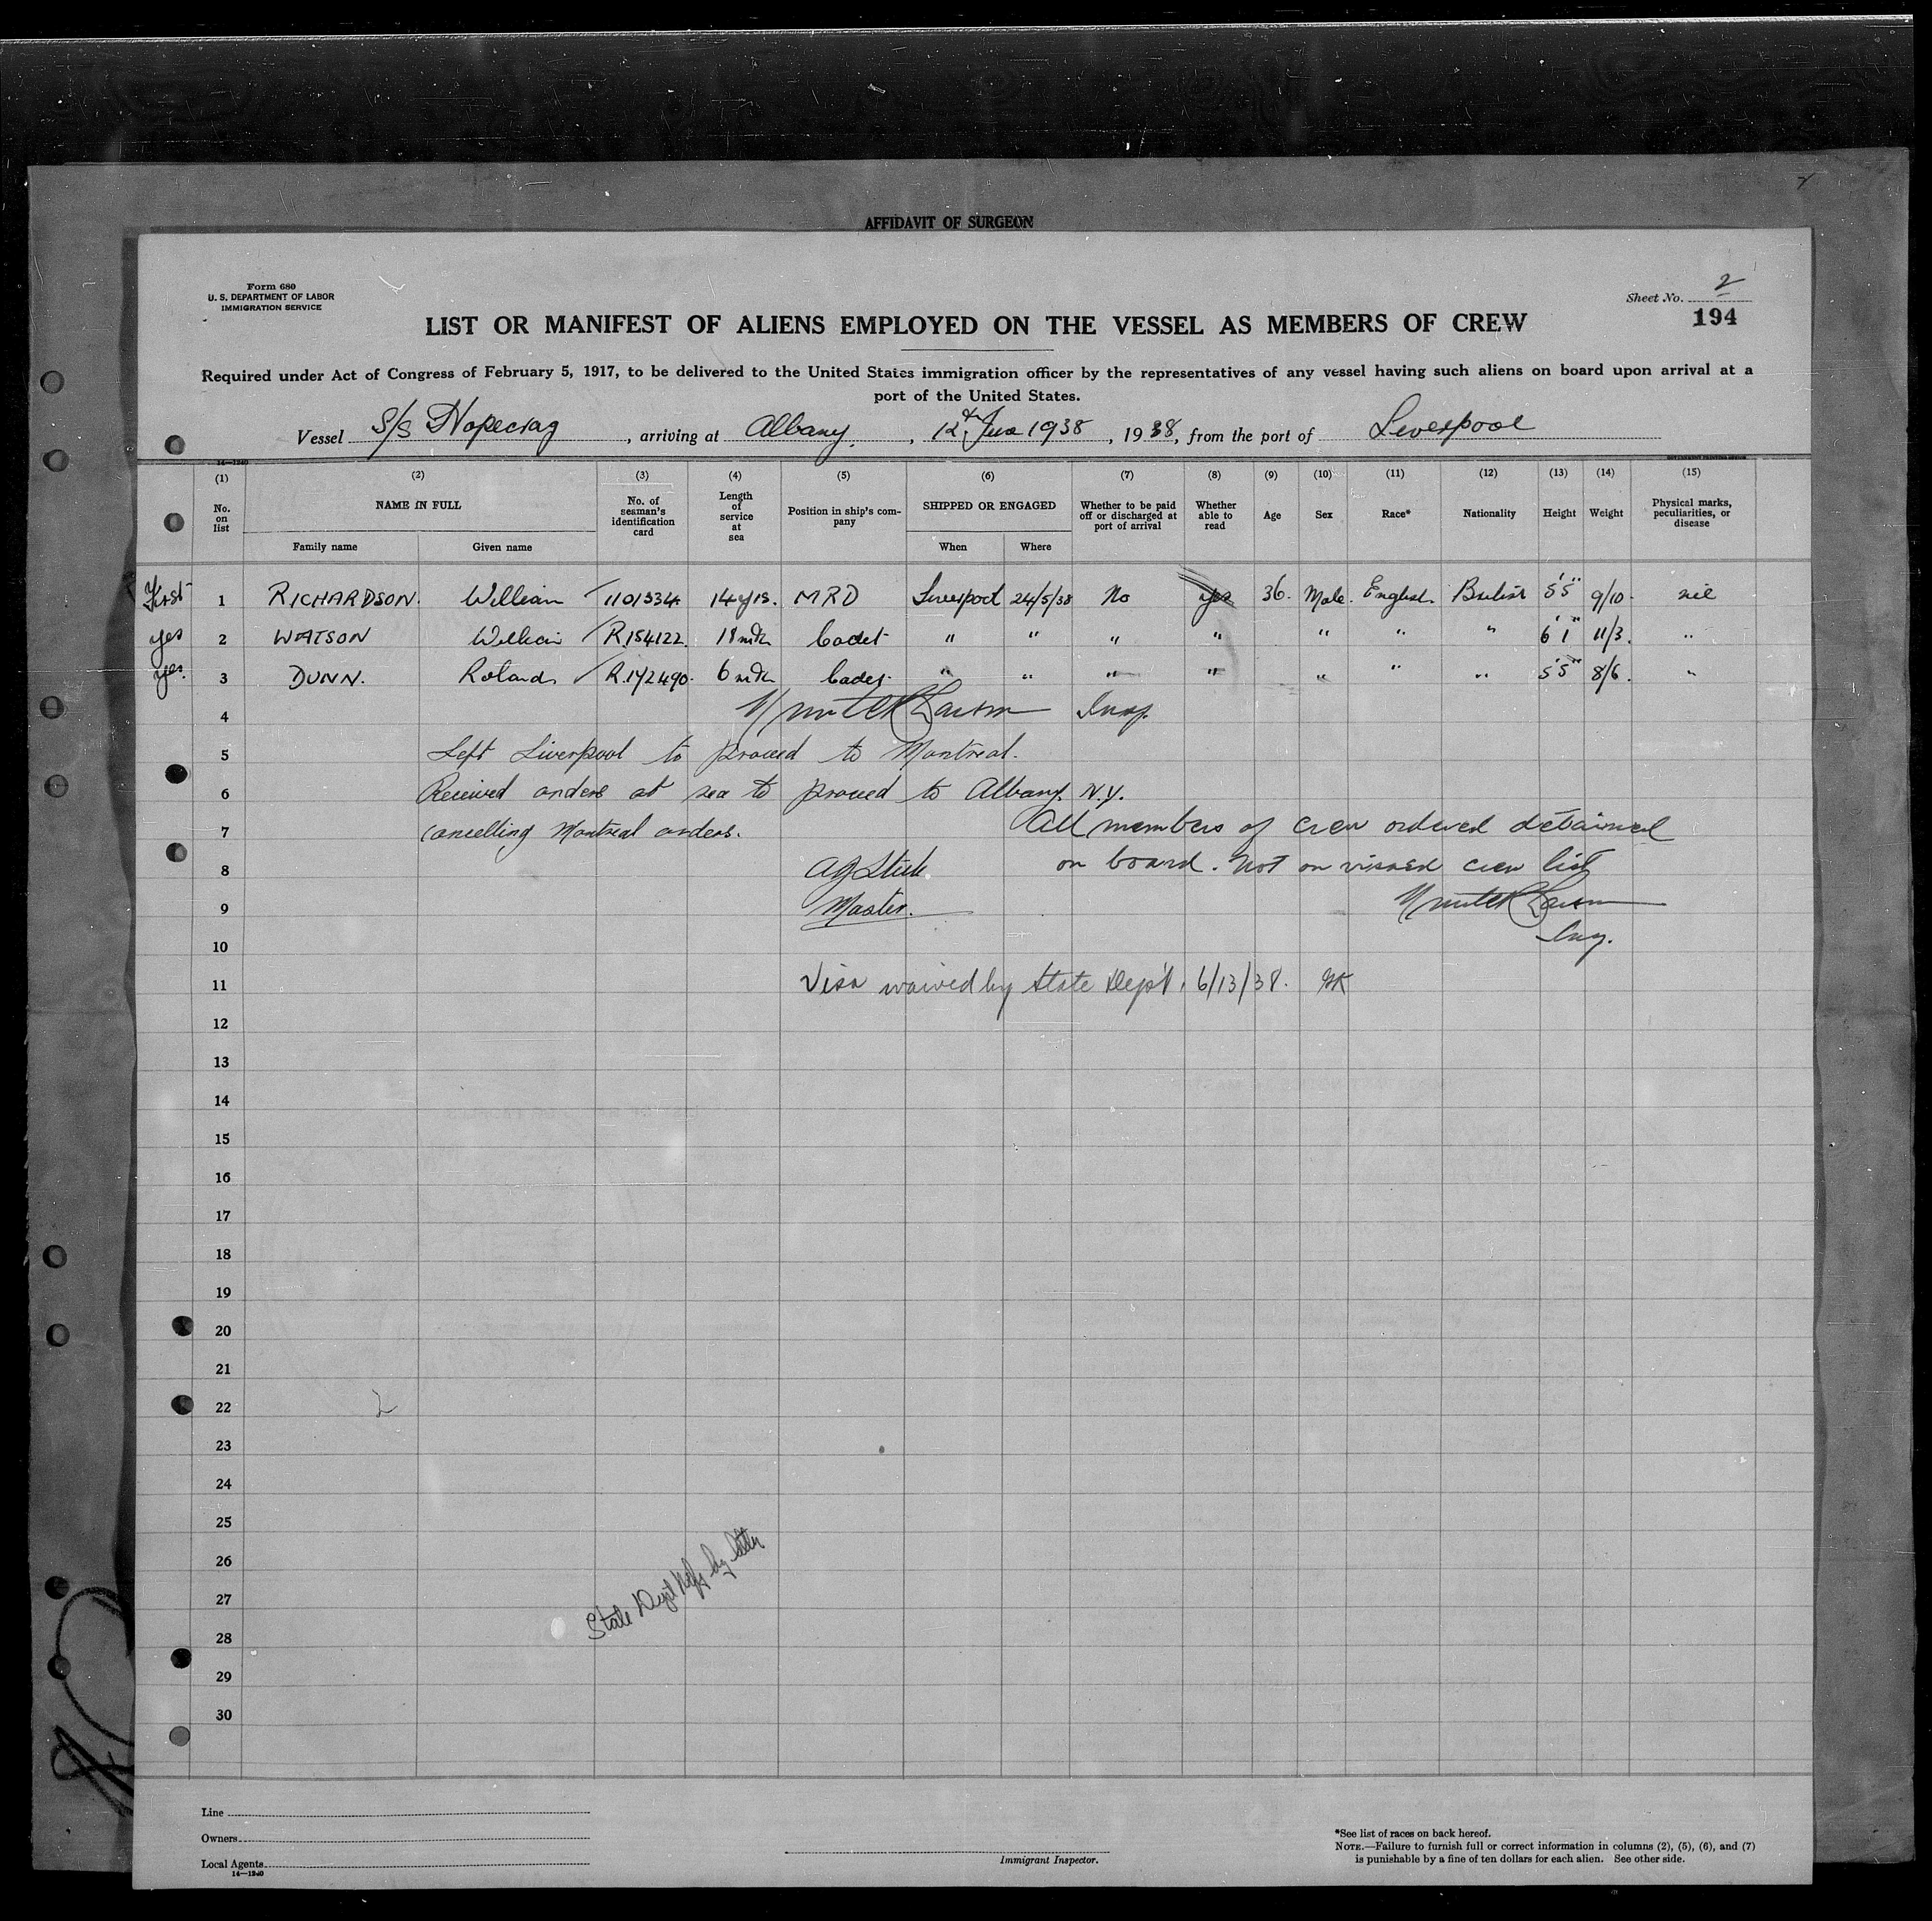 AFFIDAVIT OF SURGEON
Form 680
U. S. DEPARTMENT OF LABOR
IMMIGRATION SERVICE
Sheet No. 2
194
LIST OR MANIFEST OF ALIENS EMPLOYED ON THE VESSEL AS MEMBERS OF CREW
Required under Act of Congress of February 5, 1917, to be delivered to the United States immigration officer by the representatives of any vessel having such aliens on board upon arrival at a
port of the United States.
Vessel S/S Hopecrag, arriving at Albany, 12th June 1938, 1938, from the port of Liverpool
14—1240
(1) (2) (3) (4) (5) (6) (7) (8) (9) (10) (11) (12) (13) (14) (15)
No. on list
NAME IN FULL
Family name
Given name
No. of seaman's identification card
Length of service at sea
Position in ship's company
SHIPPED OR ENGAGED
When
Where
Whether to be paid off or discharged at port of arrival
Whether able to read
Age
Sex
Race*
Nationality
Height
Weight
Physical marks, peculiarities, or disease
First 1 RICHARDSON. William 1101334 14 yrs. MRD Liverpool 24/5/38 No yes 36. Male. English. British 5'5" 9/10. nil
yes 2 WATSON William R.154122. 18 mth Cadet " " " " " " " 6'1" 11/3. "
yes. 3 DUNN. Roland R.172490. 6 mth Cadet " " " " " " " 5'5" 8/6. "
4 Larson Insp.
5 Left Liverpool to proceed to Montreal.
6 Received orders at sea to proceed to Albany. N.Y.
7 cancelling Montreal orders. All members of crew ordered detained
8 on board. Not on visaed crew list
9 Master. Larson
10 Insp.
11 Visa waived by State Dep't. 6/13/38.
12
13
14
15
16
17
18
19
20
21
22 2
23
24
25
26
27 State Dept by letter
28
29
30
Line
Owners
Local Agents
14—1240
Immigrant Inspector.
*See list of races on back hereof.
NOTE.—Failure to furnish full or correct information in columns (2), (5), (6), and (7)
is punishable by a fine of ten dollars for each alien. See other side.